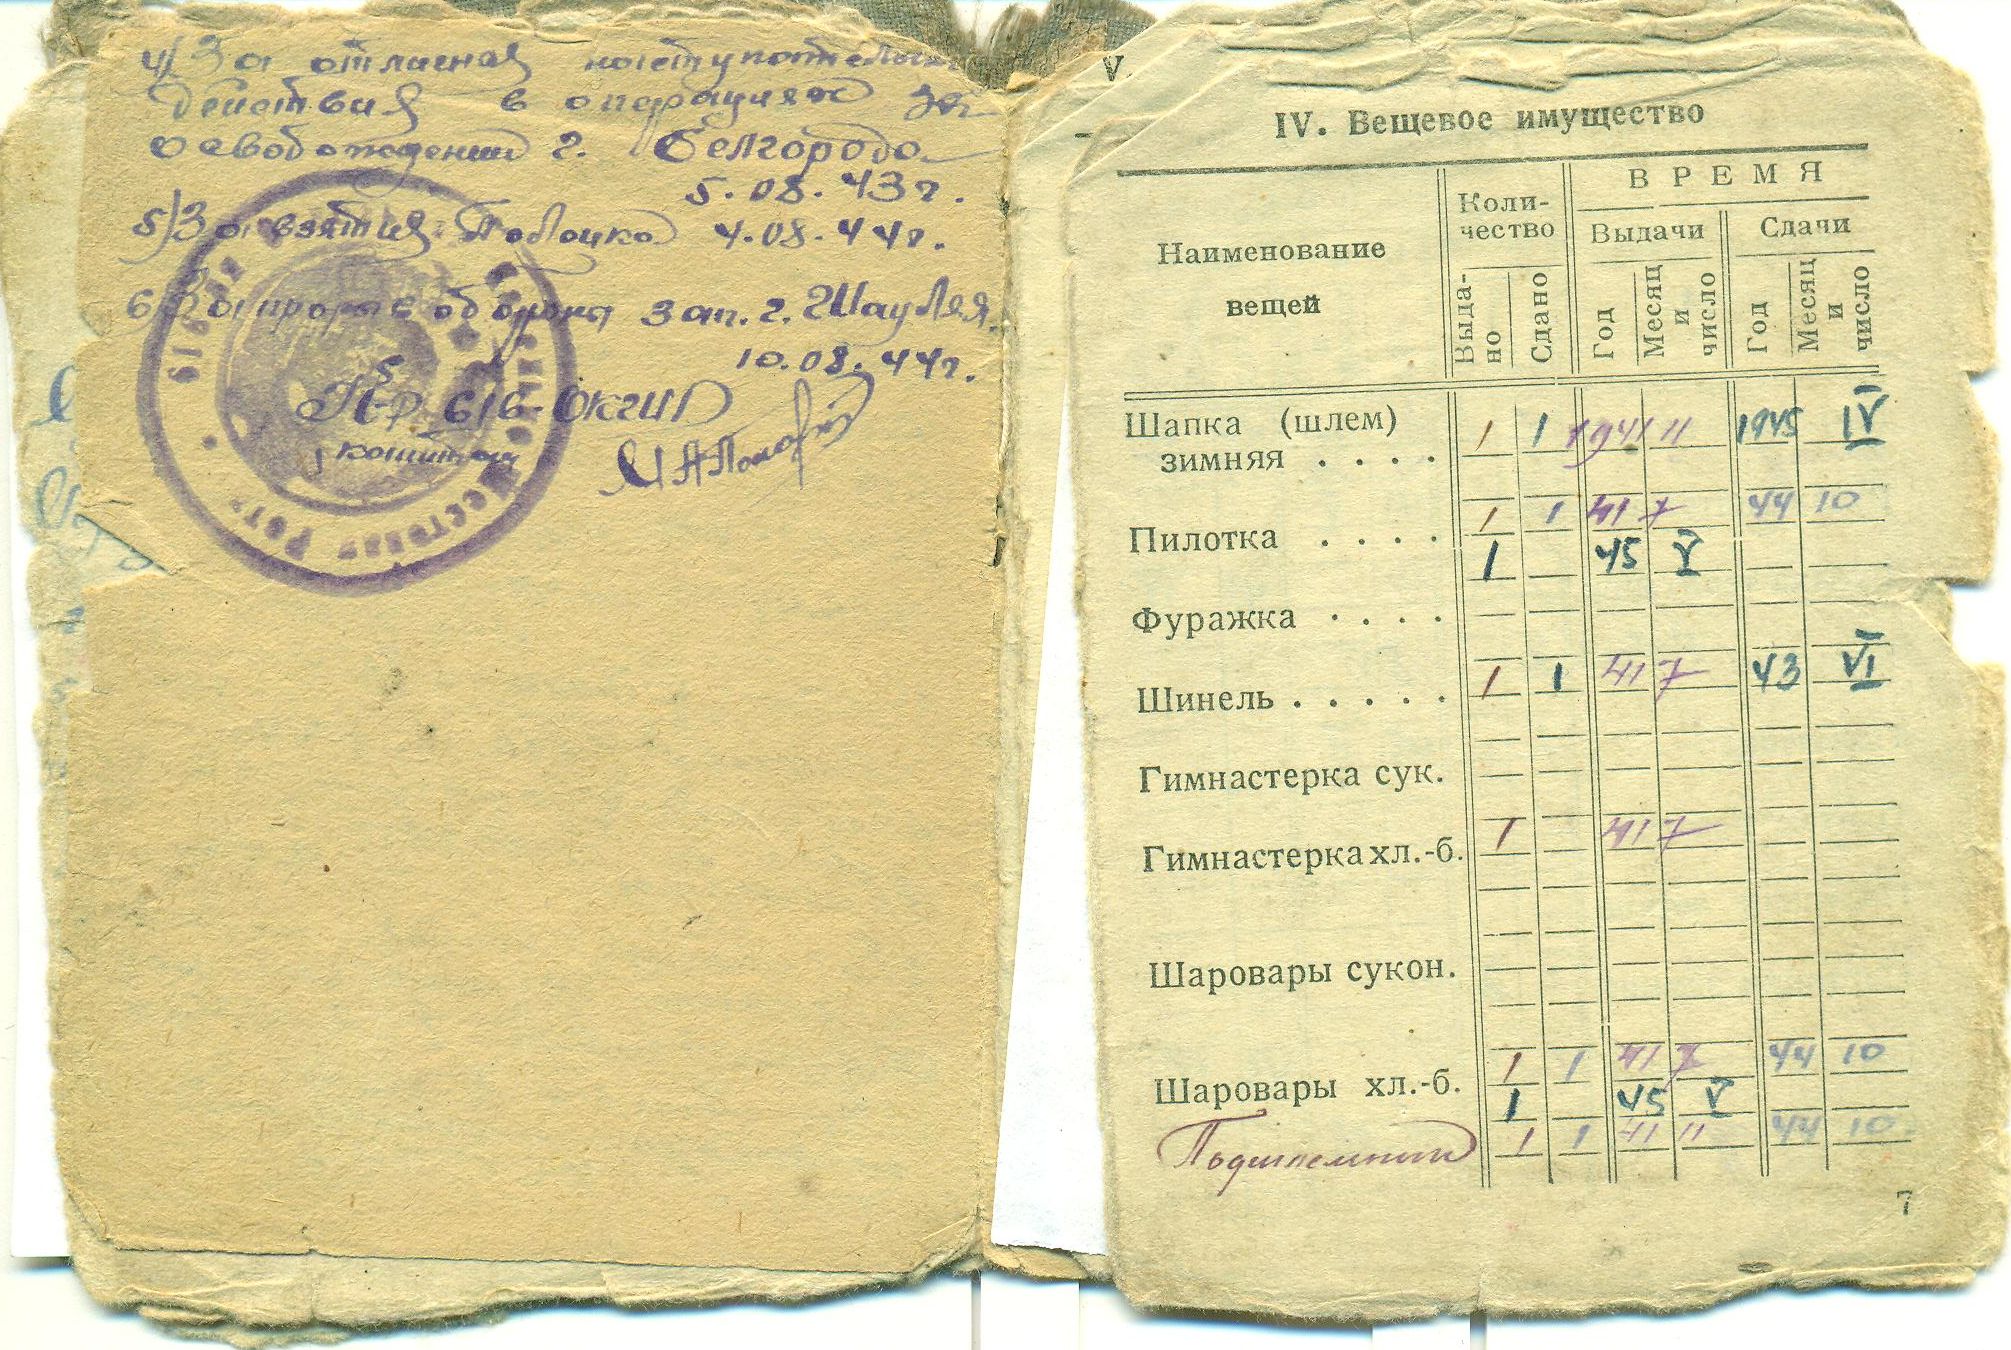 4) За отличная наступательн
Действия в операциях за
освобождении г. Белгорода
5.08.43г.
5) За взятия Полоцка 4.08.44г.
6) За прорыв обороны зап. г. Шауляя.
10.08.44г.
К-р 616
капитан
616
Рот
V.
IV. Вещевое имущество
Наименование вещей
Количество
ВРЕМЯ
Выдачи
Сдачи
Выдано
Сдано
Год
Месяц и число
Год
Месяц и число
Шапка (шлем) зимняя . . . . 1 1 1941 11 1945 IV
Пилотка . . . . 1 1 41 7 44 10
1 — 45 V — —
Фуражка . . . .
Шинель . . . . . 1 1 41 7 43 VI
Гимнастерка сук.
Гимнастерка хл.-б. 1 41 7
Шаровары сукон.
Шаровары хл.-б. 1 1 41 7 44 10
1 45 V
Подшлемник 1 1 41 11 44 10
7